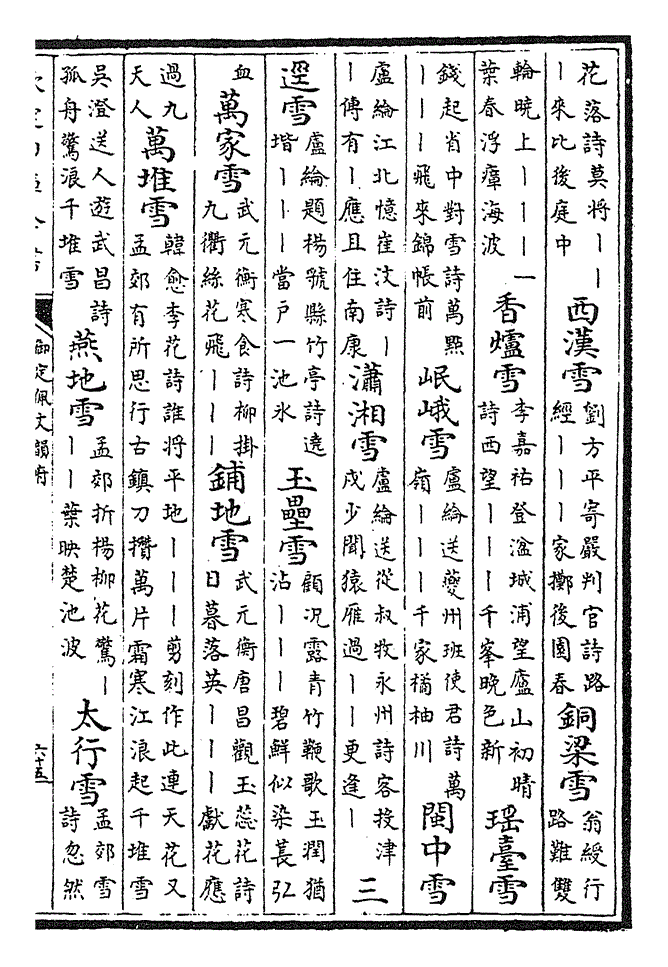 花落詩莫將｜｜
｜來比後庭中
西漢雪
劉方平寄嚴判官詩路
經｜｜｜家擲後園春
銅梁雪
翁綬行
路難雙
輪曉上｜｜｜一
葉春浮瘴海波
香爐雪
李嘉祐登湓城浦望廬山初晴
詩西望｜｜｜千峯晚色新
瑶臺雪
錢起省中對雪詩萬㸃
｜｜｜飛來錦帳前
岷峨雪
盧綸送夔州班使君詩萬
嶺｜｜｜千家橘柚川
閩中雪
盧綸江北憶崔汶詩｜
｜傳有｜應且住南康
瀟湘雪
盧綸送從叔牧永州詩客投津
戍少聞猿雁過｜｜更逢｜
三
逕雪
盧綸題楊虢縣竹亭詩遶
堦｜｜｜當戸一池氷
玉壘雪
顧况露青竹鞭歌玉潤猶
沾｜｜｜碧鮮似染萇弘
血
萬家雪
武元衡寒食詩柳掛
九衢絲花飛｜｜｜
鋪地雪
武元衡唐昌觀玉蕊花詩
日暮落英｜｜｜獻花應
過九
天人
萬堆雪
韓愈李花詩誰將平地｜｜｜剪刻作此連天花又
孟郊有所思行古鎮刀攢萬片霜寒江浪起千堆雪
吳澄送人遊武昌詩
孤舟驚浪千堆雪
燕地雪
孟郊折楊柳花驚｜
｜｜葉映楚池波
太行雪
孟郊雪
詩忽然
御定佩文韻府
六十五